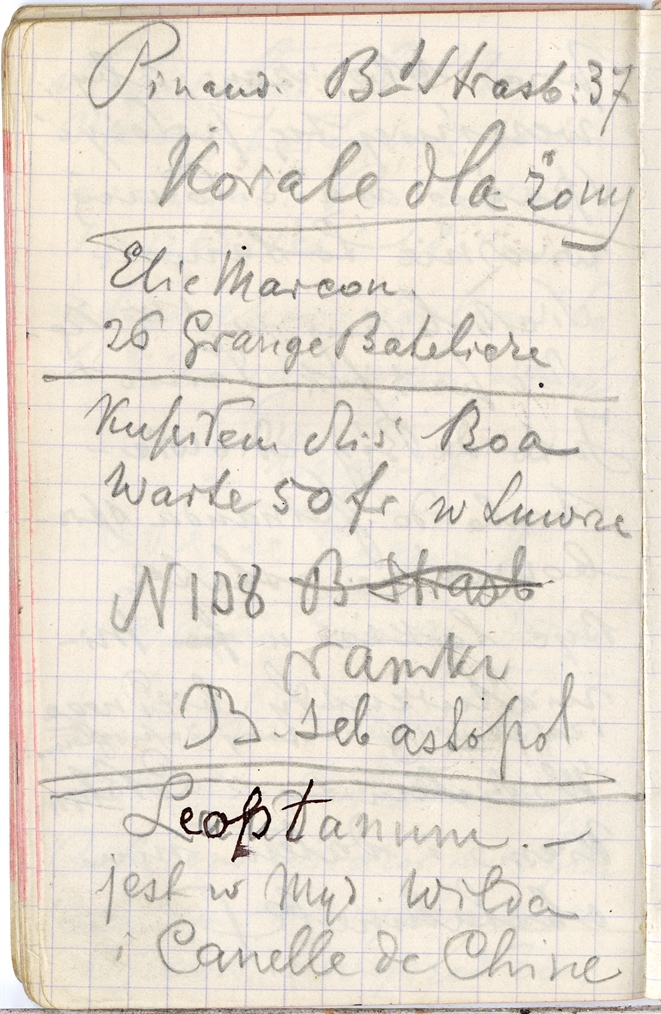 Pinaud. Bd Strasb: 37
Korale dla żony
Elie Marcon.
26 Grange Bateliere
Kupiłem dziś Boa
Warte 50 fr w Luwrze
N 108 B Strasb
ramki
B. Sebastopol
jest w Myd. Wilda
i Canelle de Chine